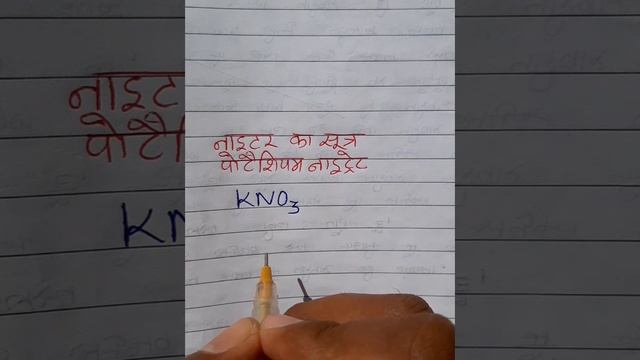 नाइटर का सूत्र
पोटैशियम नाइट्रेट
KNO₃